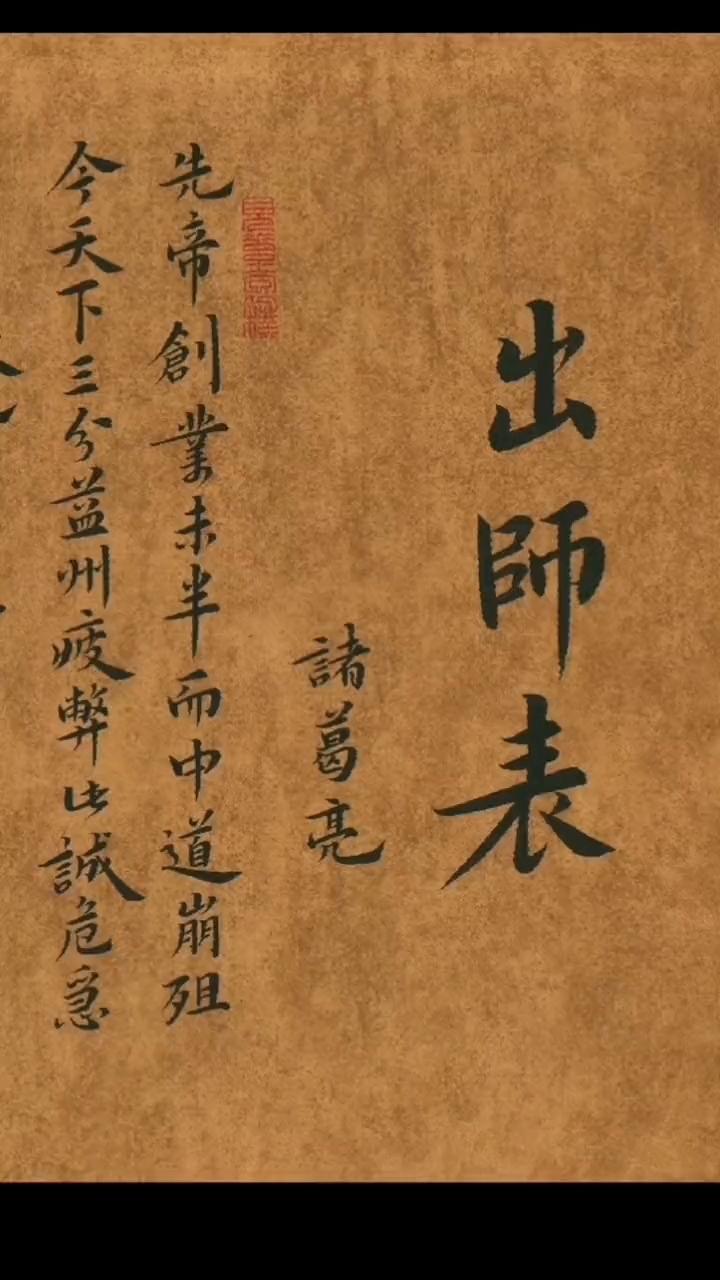 出師表
諸葛亮
先帝創業未半而中道崩殂
今天下三分益州疲弊此誠危急